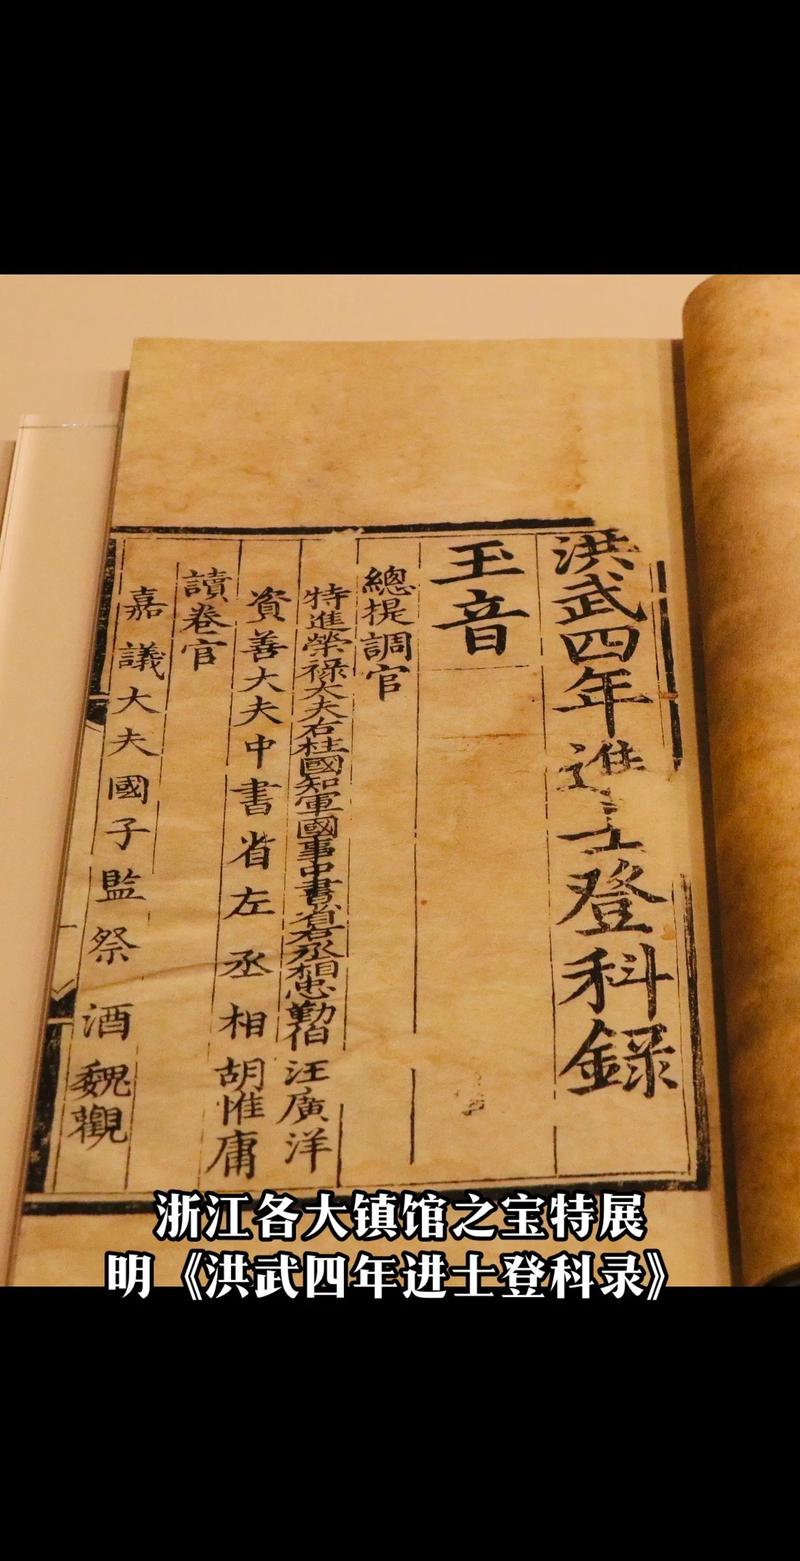 洪武四年進士登科錄
玉音
總提調官
特進榮禄大夫右柱國知軍國事中書省右丞相忠勤伯汪廣洋
資善大夫中書省左丞相胡惟庸
讀卷官
嘉議大夫國子監祭酒魏觀
浙江各大镇馆之宝特展
明《洪武四年进士登科录》